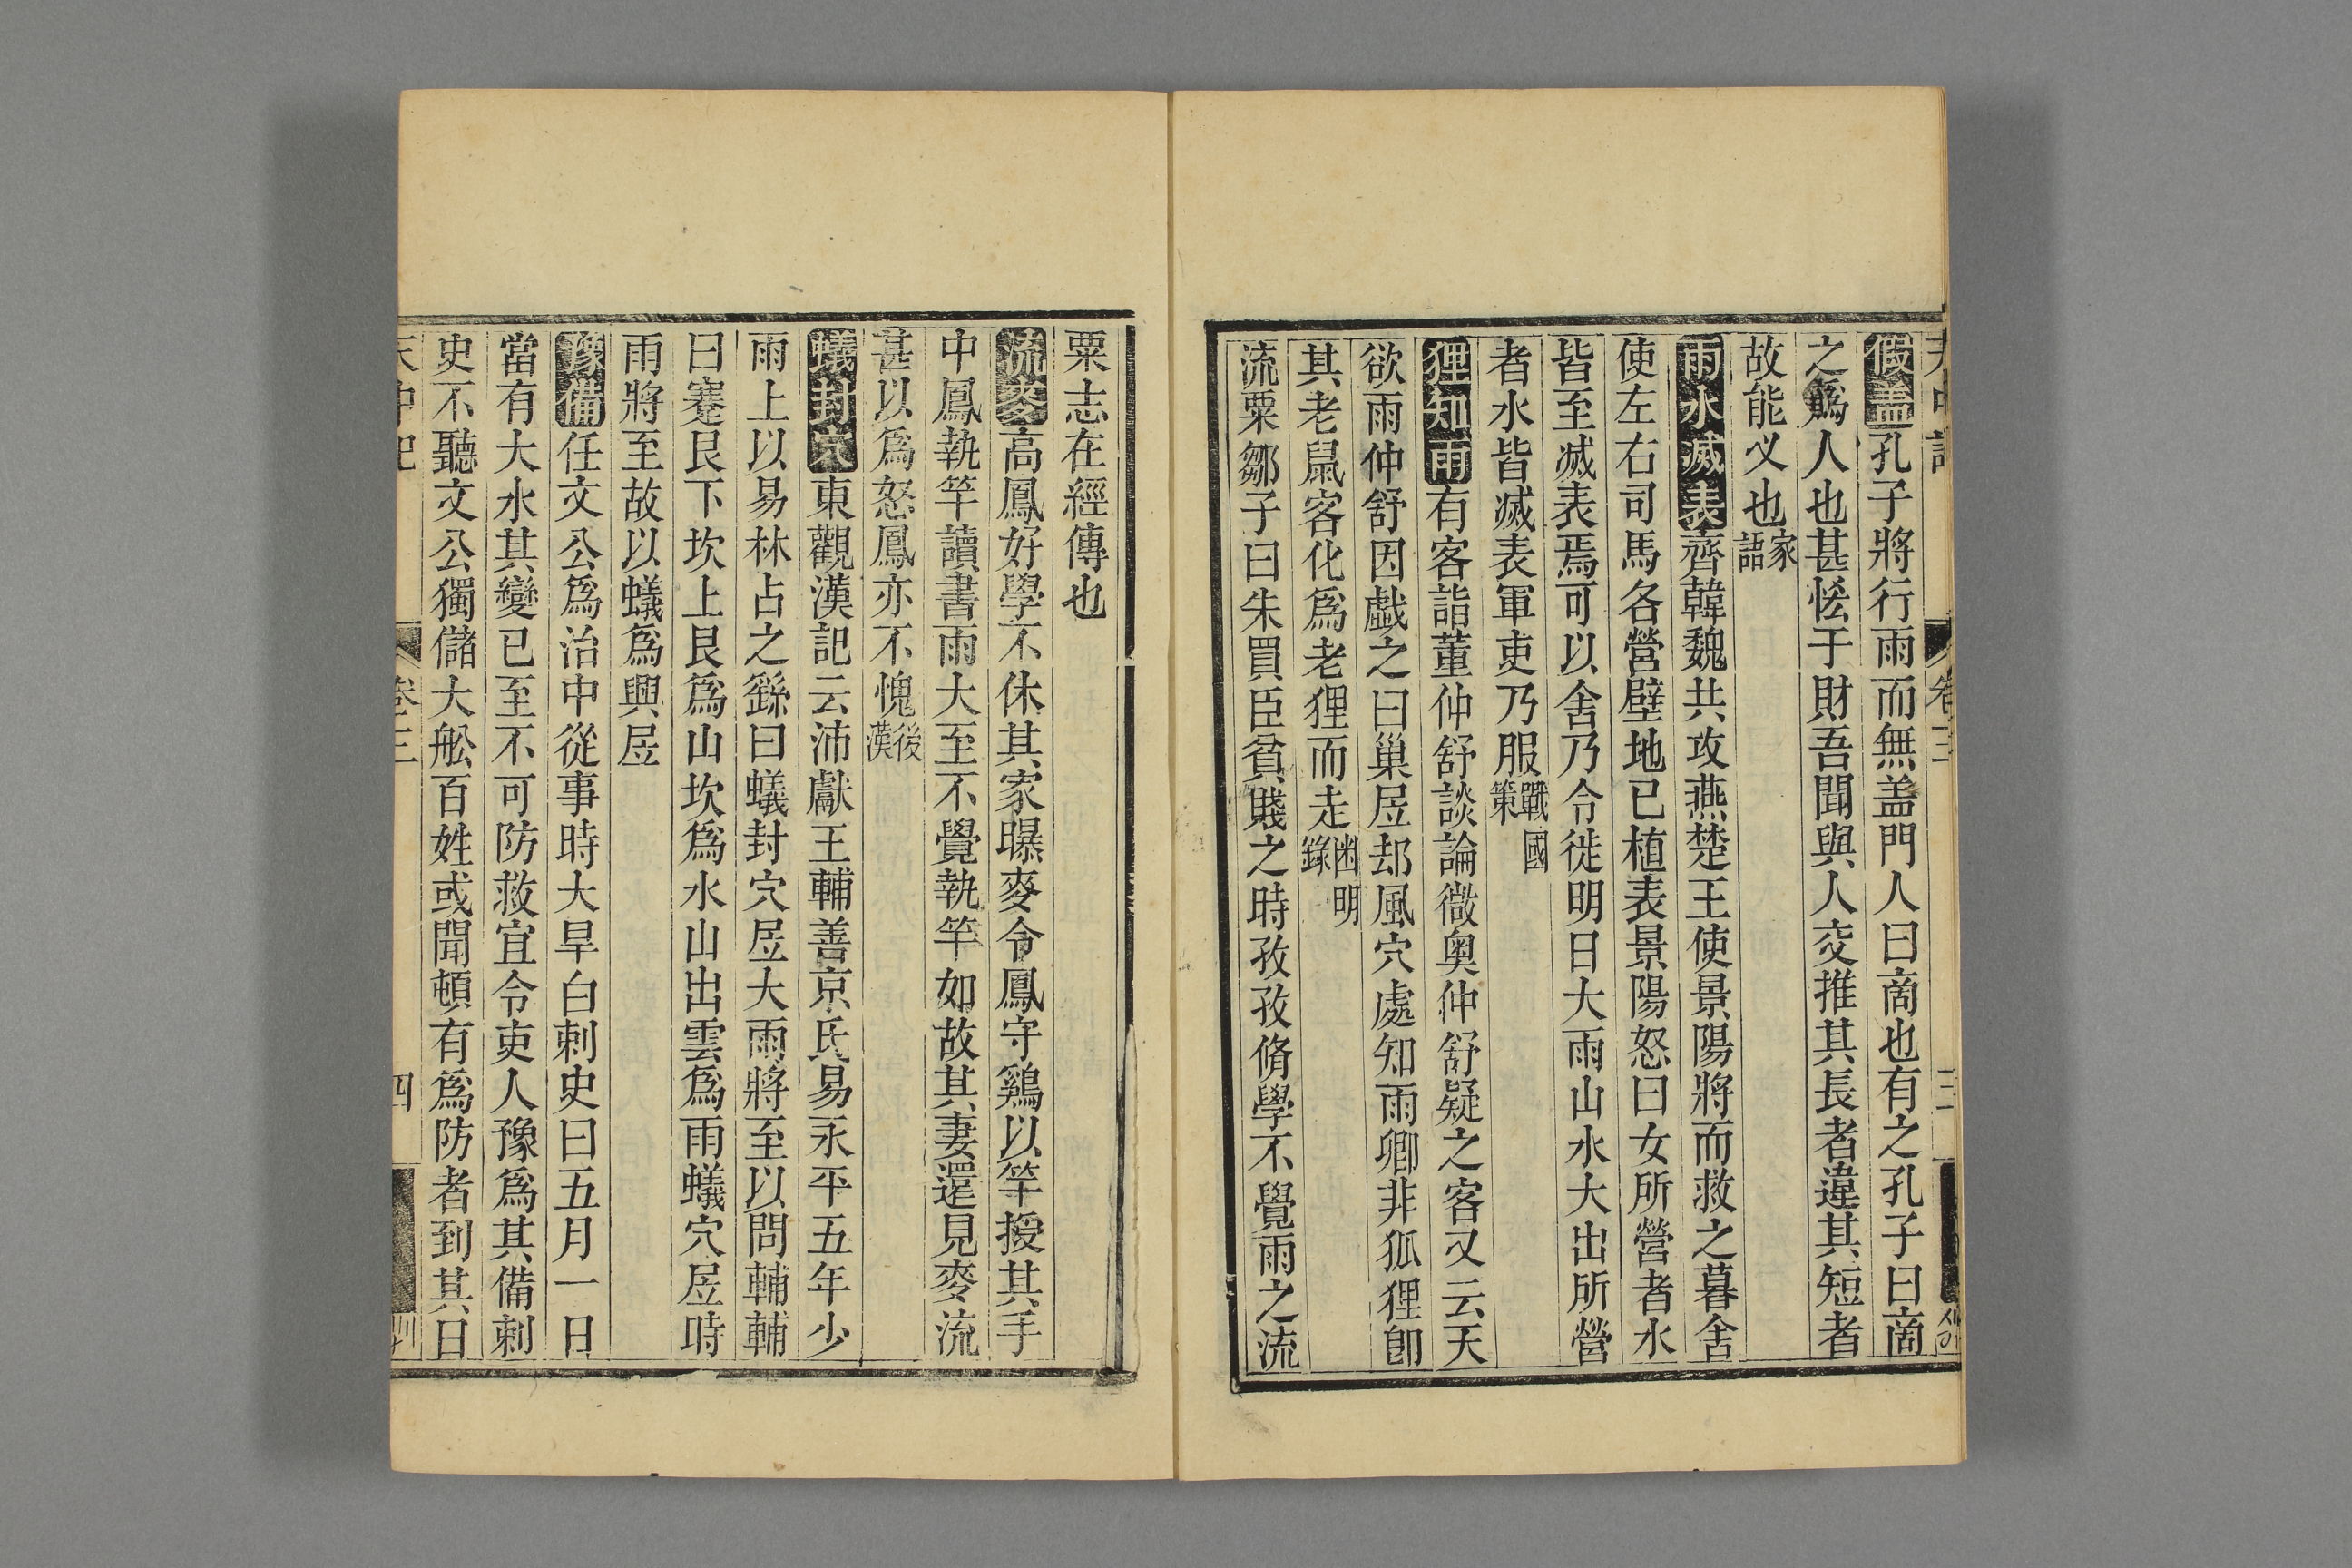 天中記 卷三 三
假盖孔子將行雨而無盖門人曰啇也有之孔子曰啇
之爲人也甚恡于財吾聞與人交推其長者違其短者
故能乆也家語
雨水滅表齊韓魏共攻燕楚王使景陽將而救之暮舍
使左右司馬各營壁地已植表景陽怒曰女所營者水
皆至滅表焉可以舍乃令徙明日大雨山水大出所營
者水皆滅表軍吏乃服戰國策
狸知雨有客詣董仲舒談論微奧仲舒疑之客又云天
欲雨仲舒因戱之曰巢居却風穴處知雨卿非狐狸卽
其老鼠客化爲老狸而走幽明錄
流粟鄒子曰朱買臣貧賤之時孜孜脩學不覺雨之流
粟志在經傳也
流麥高鳳好學不休其家曝麥令鳳守鷄以竿授其手
中鳳執竿讀書雨大至不覺執竿如故其妻還見麥流
甚以爲怒鳳亦不愧後漢
蟻封穴東觀漢記云沛獻王輔善京氏易永平五年少
雨上以易林占之繇曰蟻封穴居大雨將至以問輔輔
曰蹇艮下坎上艮爲山坎爲水山出雲爲雨蟻穴居時
雨將至故以蟻爲興居
豫備任文公爲治中從事時大旱白刺史曰五月一日
當有大水其變已至不可防救宜令吏人豫爲其備刺
史不聽文公獨儲大舩百姓或聞頓有爲防者到其日
天中記 卷三 四